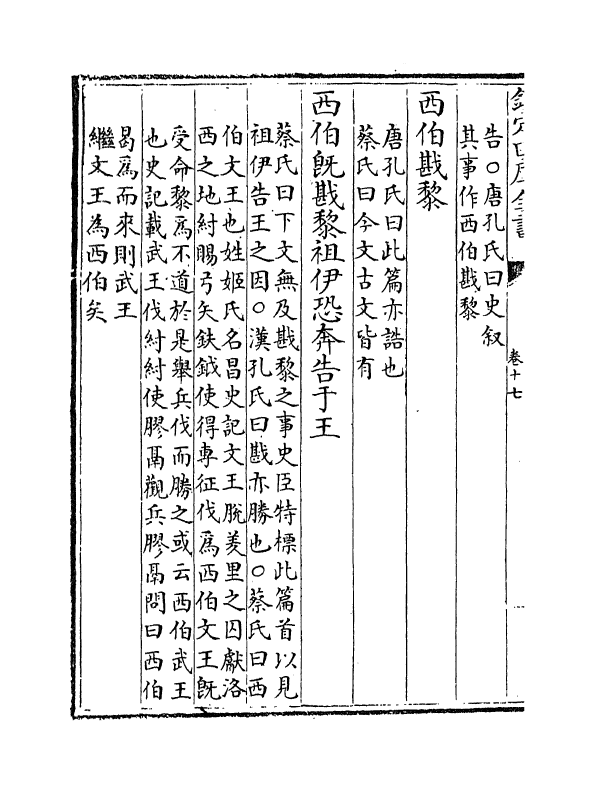 欽定四庫全書
卷十七
告〇唐孔氏曰史叙
其事作西伯戡黎
西伯戡黎
唐孔氏曰此篇亦誥也
蔡氏曰今文古文皆有
西伯旣戡黎祖伊恐奔告于王
蔡氏曰下文無及戡黎之事史臣特標此篇首以見
祖伊告王之因〇漢孔氏曰戡亦勝也〇蔡氏曰西
伯文王也姓姬氏名昌史記文王脫羑里之囚獻洛
西之地紂賜弓矢鈇鉞使得専征伐爲西伯文王旣
受命黎爲不道於是舉兵伐而勝之或云西伯武王
也史記載武王伐紂紂使膠鬲觀兵膠鬲問曰西伯
曷爲而來則武王
繼文王為西伯矣